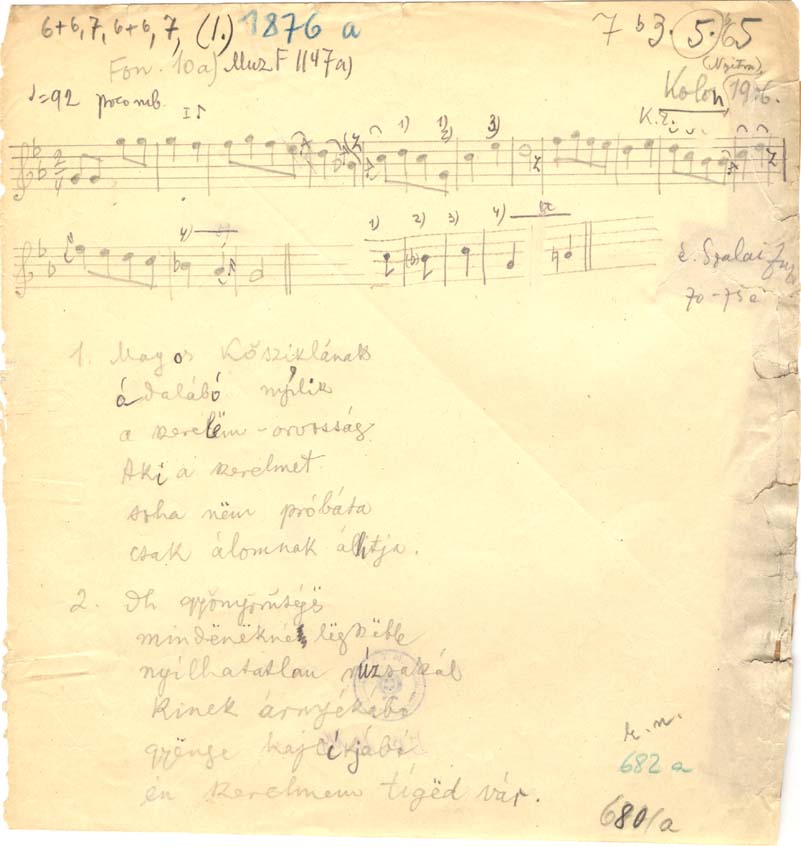 6+6, 7, 6+6, 7, (1.) 1876 a
7 b3. 5. b65
Fon. 10a) Muz F 1147a)
(Nyitra),
Kolon, 1906.
♩=92 poco mb.
K. Z.
1) 1) 2) 3)
4) 1) 2) 3) 4)
é. Szalai
70-75 é
1. Magos Kősziklának
ádalábó nyílik
a szerelëm-orvosság
Aki a szerelmet
soha nëm próbáta
csak álomnak állítja.
2. Oh gyönyörűségë
mindënëknél lëgszëbb
nyílhatatlan rúzsakál
Kinek árnyékábó
gyënge
én szerelmem tígëd vár.
682 a
680/a